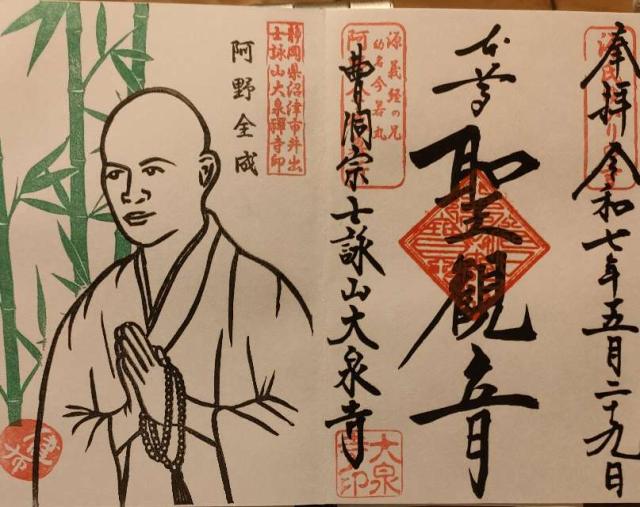 奉拝 令和七年五月二十九日
本尊
聖観音
源義経の兄
幼名今若丸
曹洞宗士詠山大泉寺
大泉
寺印
静岡県沼津市井出
士詠山大泉禪寺印
阿野全成